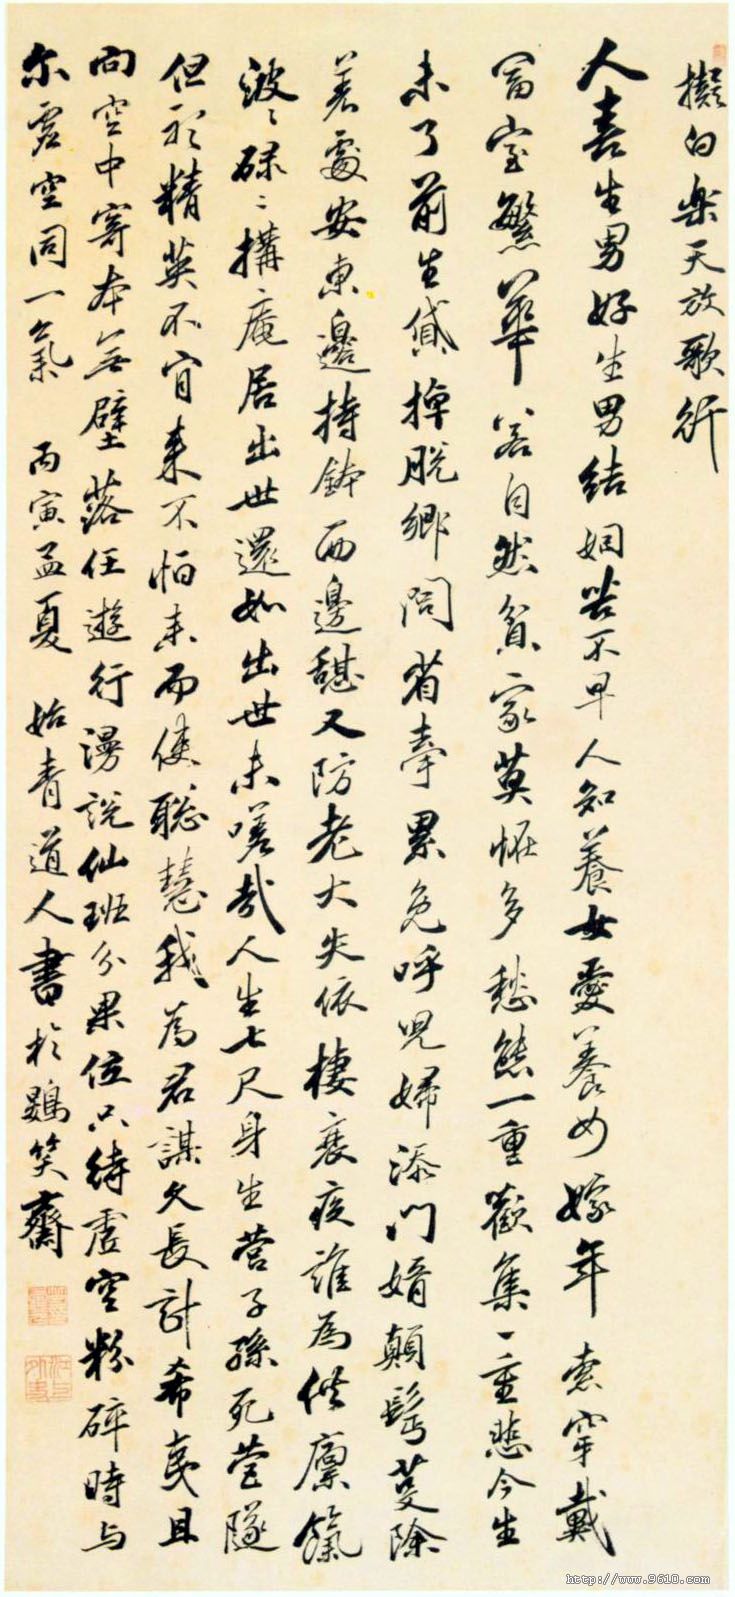 擬白樂天放歌行
人喜生男好生男結姻苦不早人知養女愛養女嫁年索穿戴
富室繁華若自然貧家莫恠多愁態一重歡集一重悲今生
未了前生貸掉脫鄉問省牽累兔呼兒婦添門婿顛髩荽除
若處安東邊持鉢西邊甚又防老大失依棲衰疫誰為供廩餼
波〻碌〻搆庵居出世還如出世未嗟哉人生七尺身生營子孫死營隧
但祈精英不宜來不怕來而使聰慧我為君謀久長計希夷且
向空中寄本無壁落任遊行漫說仙班分果位只待虛空粉碎時与
尔虛空同一氣 丙寅孟夏 始青道人書於鷃笑齋
http://www.9610.com